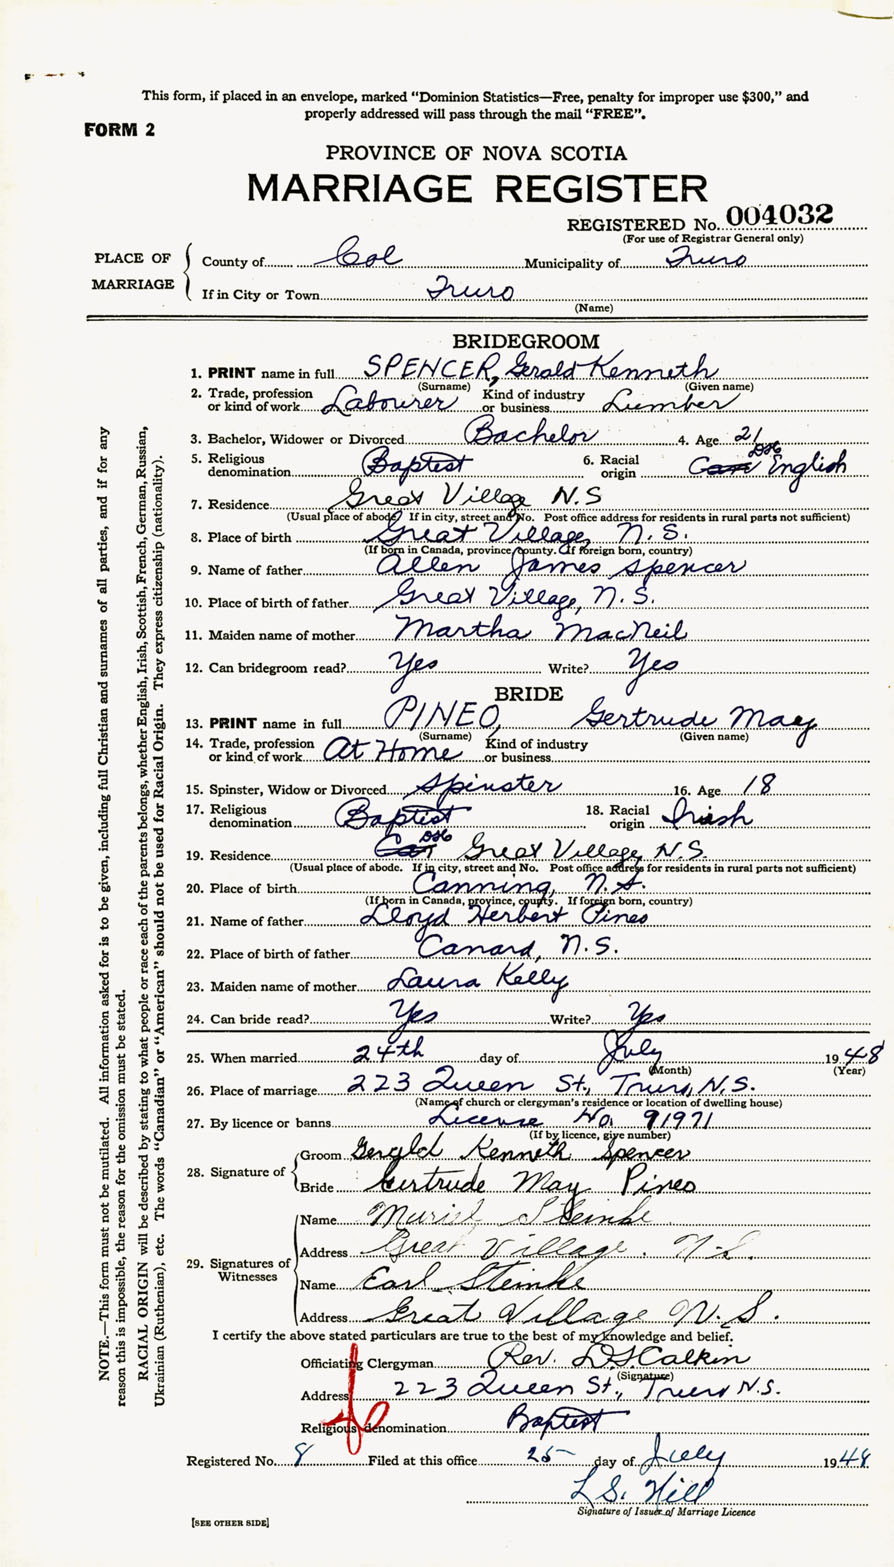 This form, if placed in an envelope, marked "Dominion Statistics—Free, penalty for improper use $300," and
properly addressed will pass through the mail "FREE".
FORM 2
PROVINCE OF NOVA SCOTIA
MARRIAGE REGISTER
REGISTERED No. 004032
(For use of Registrar General only)
PLACE OF MARRIAGE
County of Col Municipality of Truro
If in City or Town Truro
(Name)
BRIDEGROOM
1. PRINT name in full SPENCER, Gerald Kenneth
(Surname) (Given name)
2. Trade, profession or kind of work Labourer Kind of industry or business Lumber
3. Bachelor, Widower or Divorced Bachelor 4. Age 21
5. Religious denomination Baptist 6. Racial origin English
7. Residence Great Village N.S
(Usual place of abode. If in city, street and No. Post office address for residents in rural parts not sufficient)
8. Place of birth Great Village, N.S.
(If born in Canada, province, county. If foreign born, country)
9. Name of father Allen James Spencer
10. Place of birth of father Great Village, N.S.
11. Maiden name of mother Martha MacNeil
12. Can bridegroom read? Yes Write? Yes
BRIDE
13. PRINT name in full PINEO, Gertrude May
(Surname) (Given name)
14. Trade, profession or kind of work At Home Kind of industry or business
15. Spinster, Widow or Divorced Spinster 16. Age 18
17. Religious denomination Baptist 18. Racial origin Irish
19. Residence Great Village, N.S.
(Usual place of abode. If in city, street and No. Post office address for residents in rural parts not sufficient)
20. Place of birth Canning, N.S.
(If born in Canada, province, county. If foreign born, country)
21. Name of father Lloyd Herbert Pineo
22. Place of birth of father Canard, N.S.
23. Maiden name of mother Laura Kelly
24. Can bride read? Yes Write? Yes
25. When married 24th day of July 1948
(Month) (Year)
26. Place of marriage 223 Queen St., Truro, N.S.
(Name of church or clergyman's residence or location of dwelling house)
27. By licence or banns License No. 91971
(If by licence, give number)
28. Signature of
Groom Gerald Kenneth Spencer
Bride Gertrude May Pineo
29. Signatures of Witnesses
Name Muriel Steinke
Address Great Village. N.S.
Name Earl Steinke
Address Great Village N.S.
I certify the above stated particulars are true to the best of my knowledge and belief.
Officiating Clergyman Rev. D.S. Calkin
(Signature)
Address 223 Queen St., Truro N.S.
Religious denomination Baptist
Registered No. 8 Filed at this office 25 day of July 1948
L S. Hill
Signature of Issuer of Marriage Licence
[SEE OTHER SIDE]
NOTE.—This form must not be mutilated. All information asked for is to be given, including full Christian and surnames of all parties, and if for any
reason this is impossible, the reason for the omission must be stated.
RACIAL ORIGIN will be described by stating to what people or race each of the parents belongs, whether English, Irish, Scottish, French, German, Russian,
Ukrainian (Ruthenian), etc. The words "Canadian" or "American" should not be used for Racial Origin. They express citizenship (nationality).